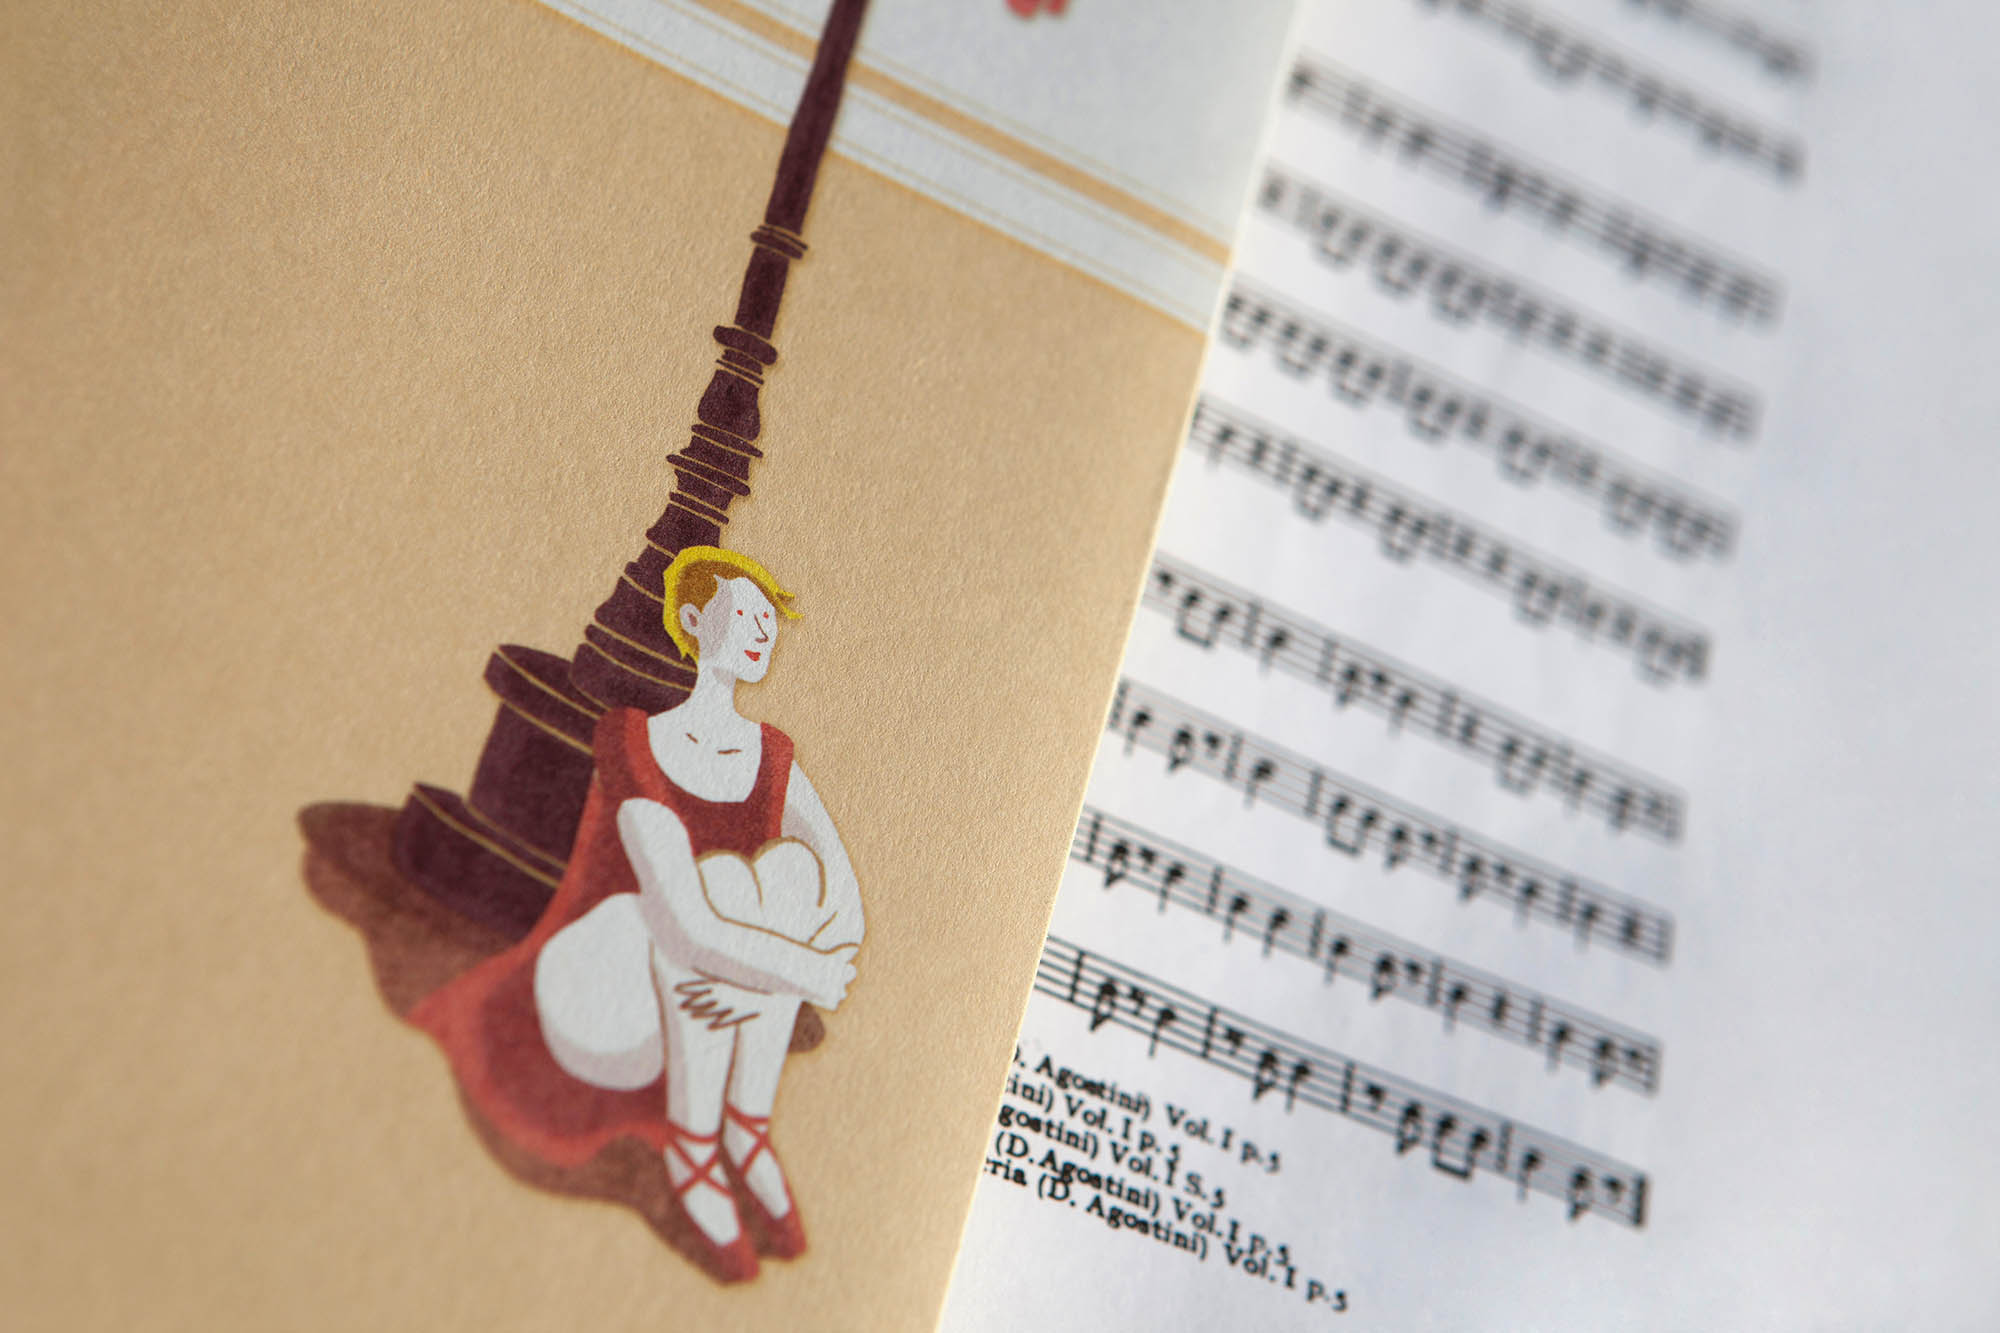 D. Agostini) Vol. I p. 5
tini) Vol. I p. 5
gostini) Vol. I S. 5
(D. Agostini) Vol. I p. 5
ria (D. Agostini) Vol. I p. 5